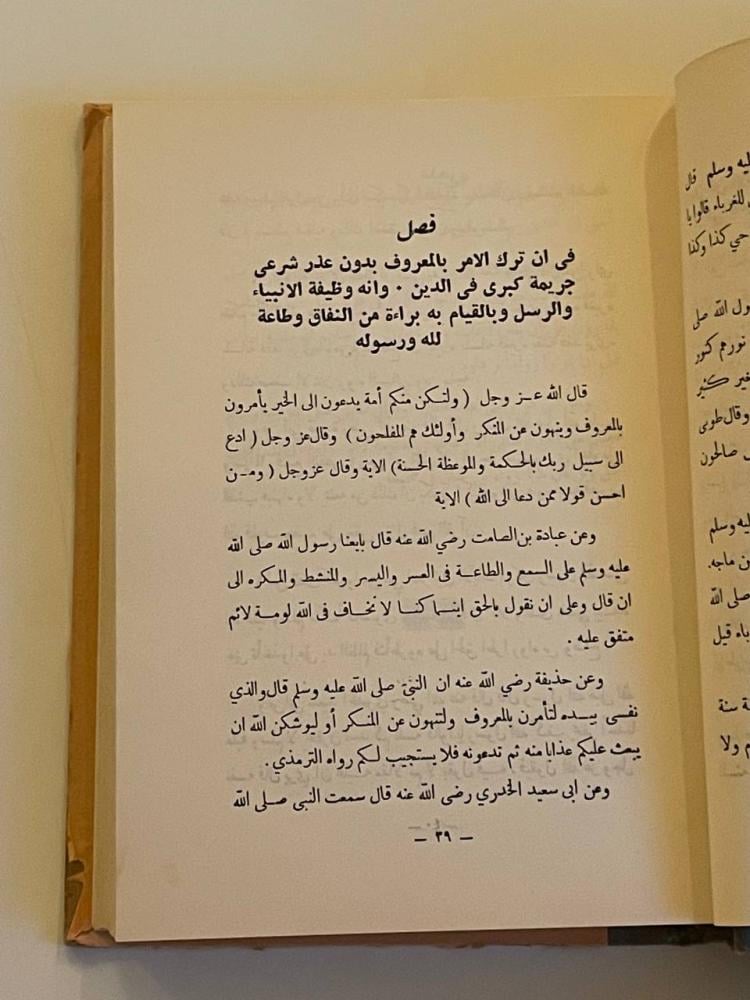 فصل
فى ان ترك الامر بالمعروف بدون عذر شرعى
جريمة كبرى فى الدين ٠ وانه وظيفة الانبياء
والرسل وبالقيام به براءة من النفاق وطاعة
لله ورسوله
قال الله عـز وجل ( ولتـكن منكم أمة يدعون الى الخير يأمرون
بالمعروف وينهون عن المنكر وأولئك هم المفلحون ) وقال عز وجل ( ادع
الى سبيل ربك بالحكمة والموعظة الحسنة) الاية وقال عزوجل ( ومـن
احسن قولا ممن دعا الى الله ) الاية
وعن عبادة بن الصامت رضي الله عنه قال بايعنا رسول الله صلى الله
عليه وسلم على السمع والطاعـة فى العسر واليسر والمنشط والمكره الى
ان قال وعلى ان نقول بالحق اينـما كنـا لا نخـاف فى الله لومـة لائم
متفق عليه .
وعن حذيفة رضي الله عنه ان النبيّ صلى الله عليه وسلم قال والذي
نفسى بيـده لتأمرن بالمعروف ولتنهون عن المنـكر أو ليوشكن الله ان
يبعث عليكم عذابا منه ثم تدعونه فلا يستجيب لـكم رواه الترمذي .
وعن ابى سعيد الخدري رضي الله عنه قال سمعت النبى صـلى الله
— ٣٩ —
ليه وسلم قال
للغرباء قالوا يا
حي كذا وكذا
ول الله صلى
نورهم كنور
خير كثير
وقال طوبى
صالحون
ليه وسلم
ن ماجه.
صلى الله
باء قيل
ة سنة
م ولا